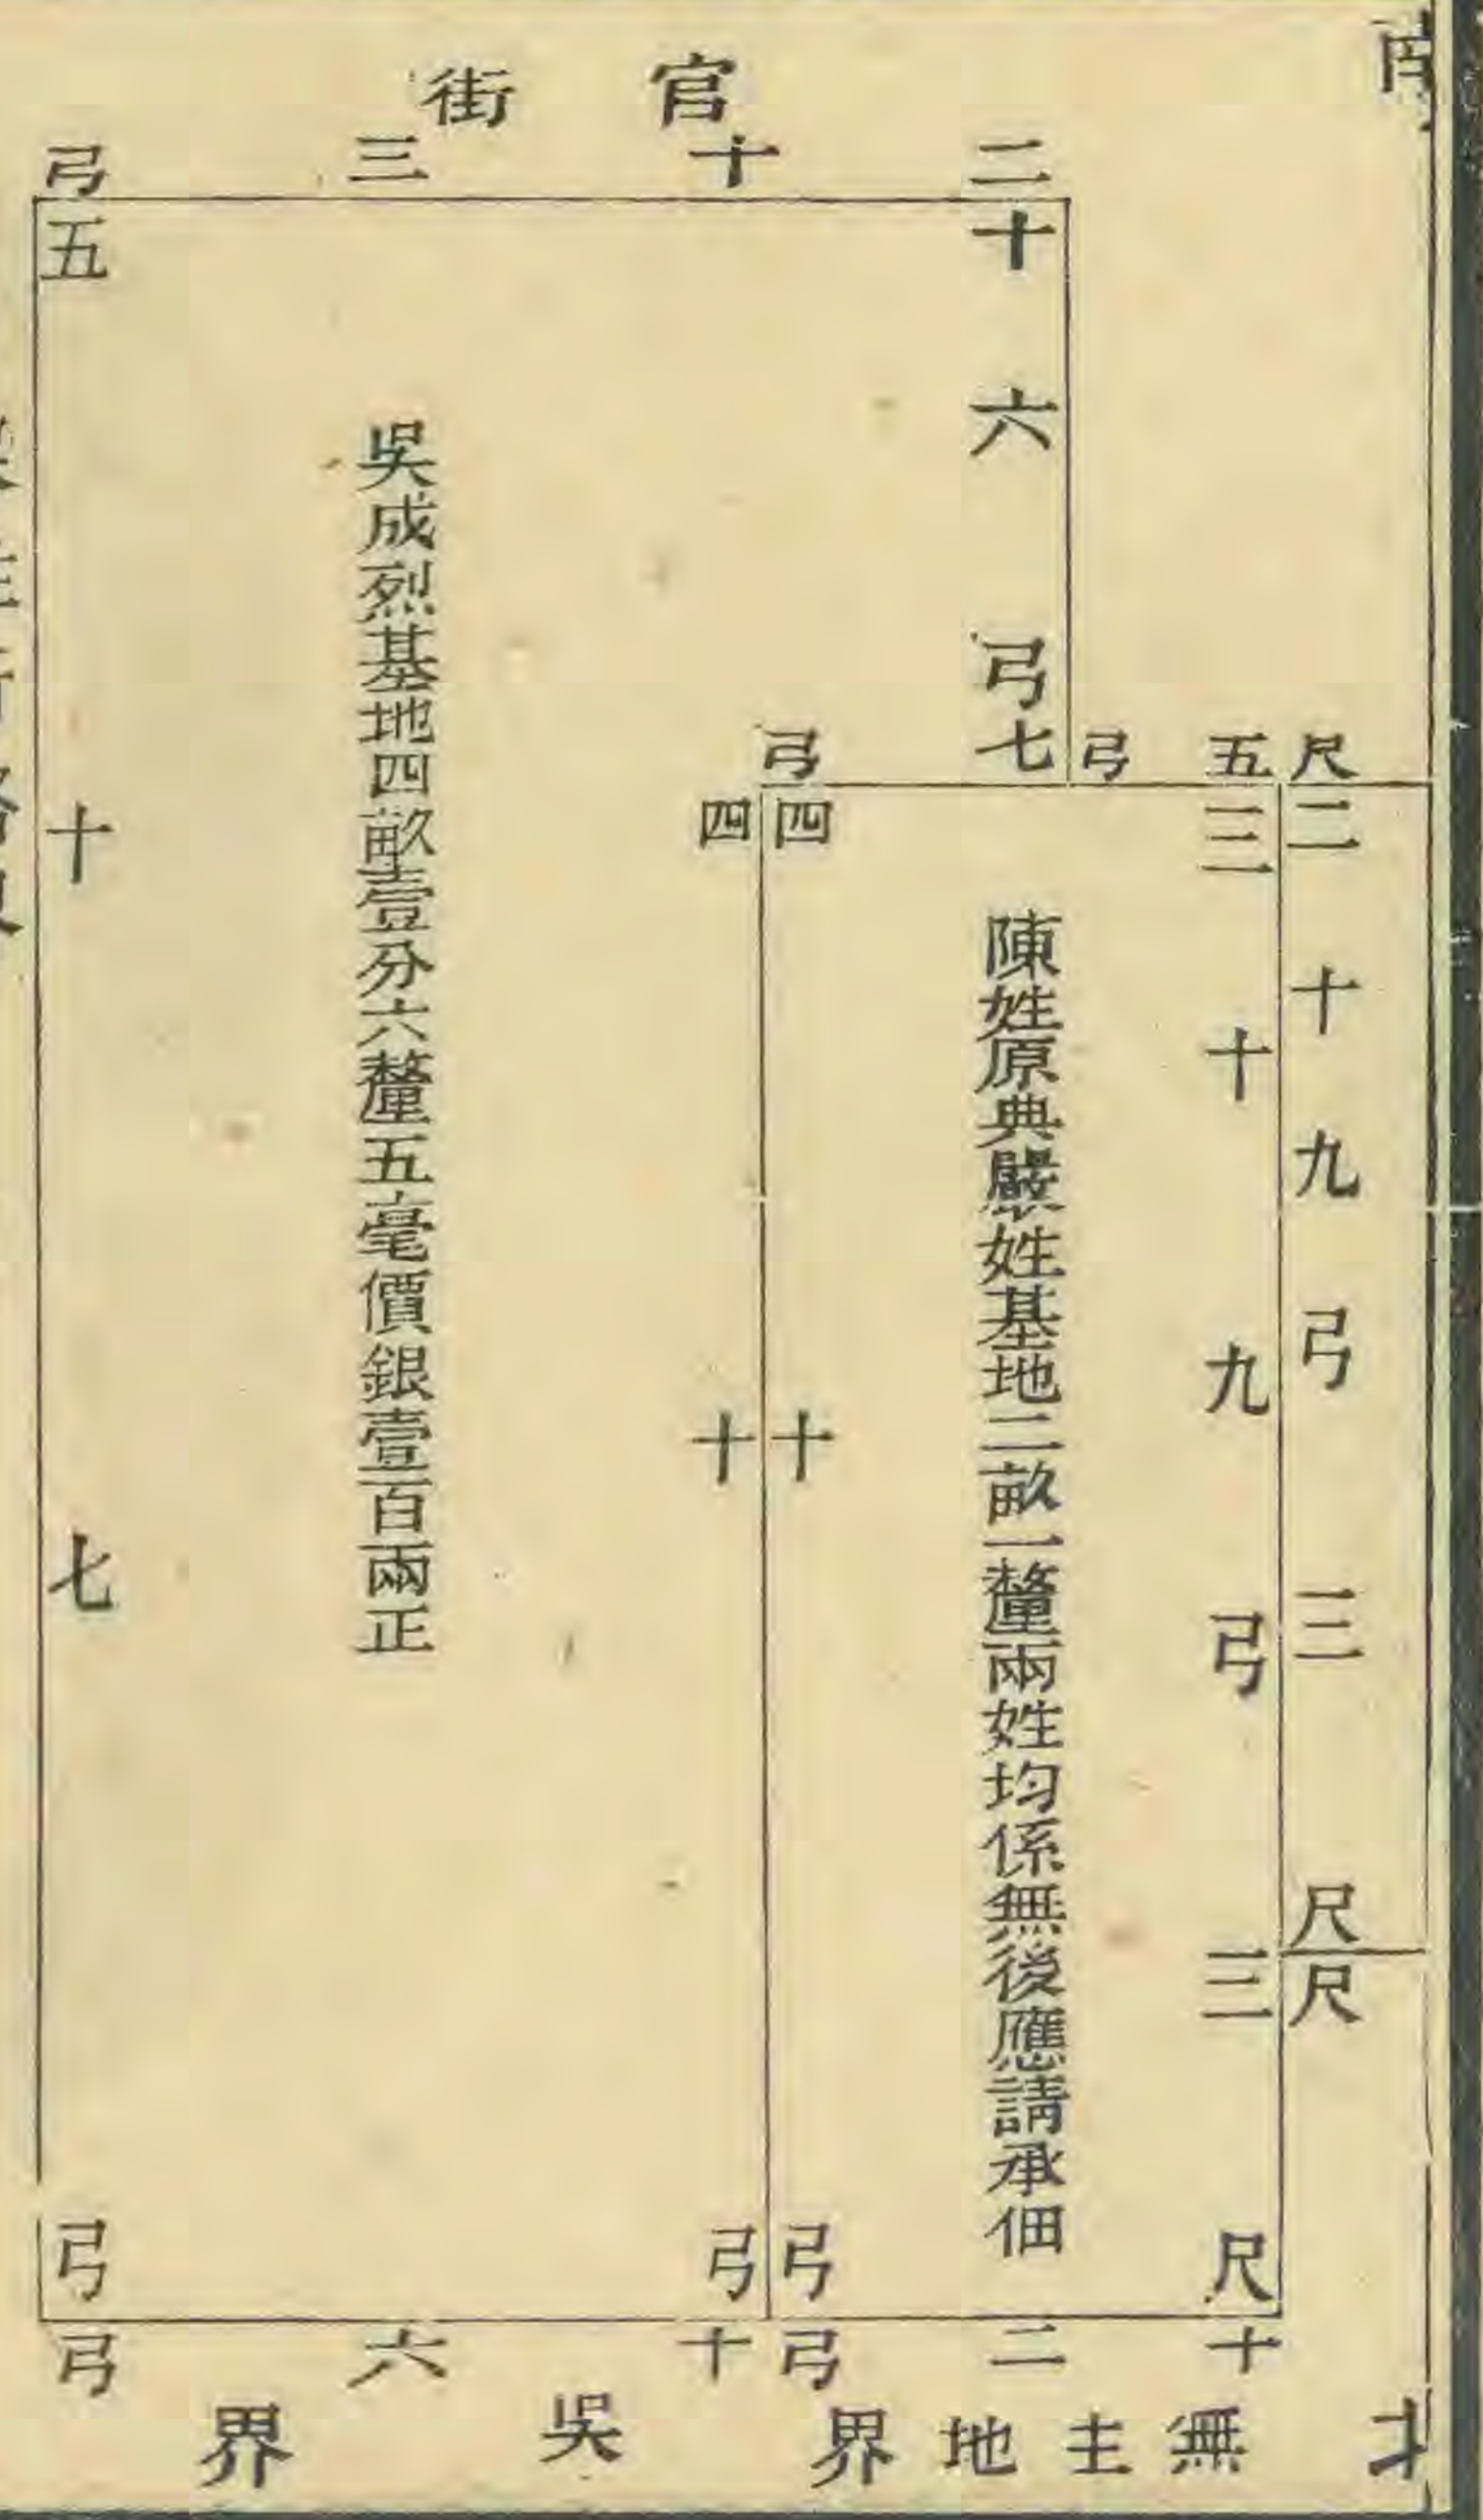 南
官街
二十三弓
十六弓
七弓
五尺
弓
二十九弓三尺
尺
三十九弓三尺
陳姓原典嚴姓基地二畝一釐兩姓均係無後應請承佃
四十弓
四十弓
吳成烈基地四畝壹分六釐五毫價銀壹百兩正
五十七弓
十二弓
十六弓
無主地界
吳界
北